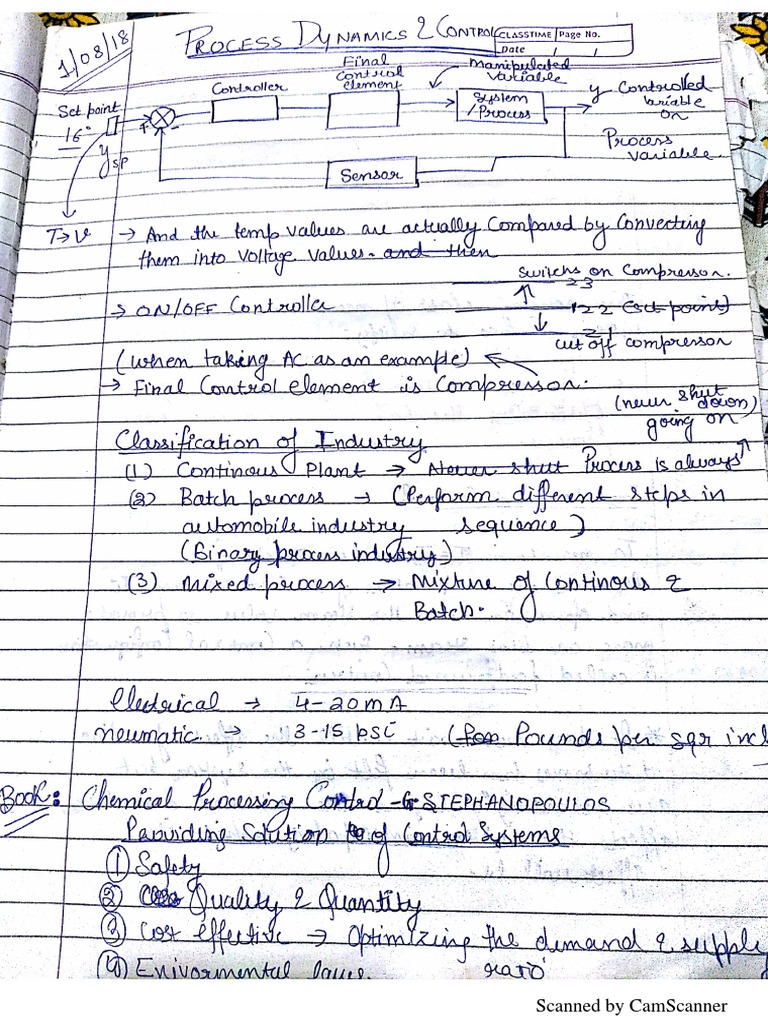 1/08/18
PROCESS DYNAMICS & CONTROL
CLASSTIME Page No.
Date / /
Set point
16°
ysp
T→V
Controller
Final
Control
element
Manipulated
Variable
System
/Process
y Controlled
Variable
or
Process
variable
+ -
Sensor
→ And the temp values are actually Compared by Converting
them into voltage values. and then
switchs on Compressor.
23
→ ON/OFF Controller
22 (set point)
21
cut off compressor
(when taking AC as an example)
→ Final Control element is Compressor.
(never shut
down)
going on
Classification of Industry
(1) Continous Plant → Never shut Process is always
(2) Batch process → (Perform different steps in
automobile industry sequence)
(Binary process industry)
(3) Mixed process → Mixture of Continous &
Batch.
Electrical → 4-20mA
neumatic → 3-15 psi (for Pounds per sqr inch
Book: Chemical Processing Control - G STEPHANOPOULOS
Providing Solution to of Control Systems
① Safety
② Quality & Quantity
③ Cost effective → Optimizing the demand & supply
ratio
④ Enivormental laws.
Scanned by CamScanner